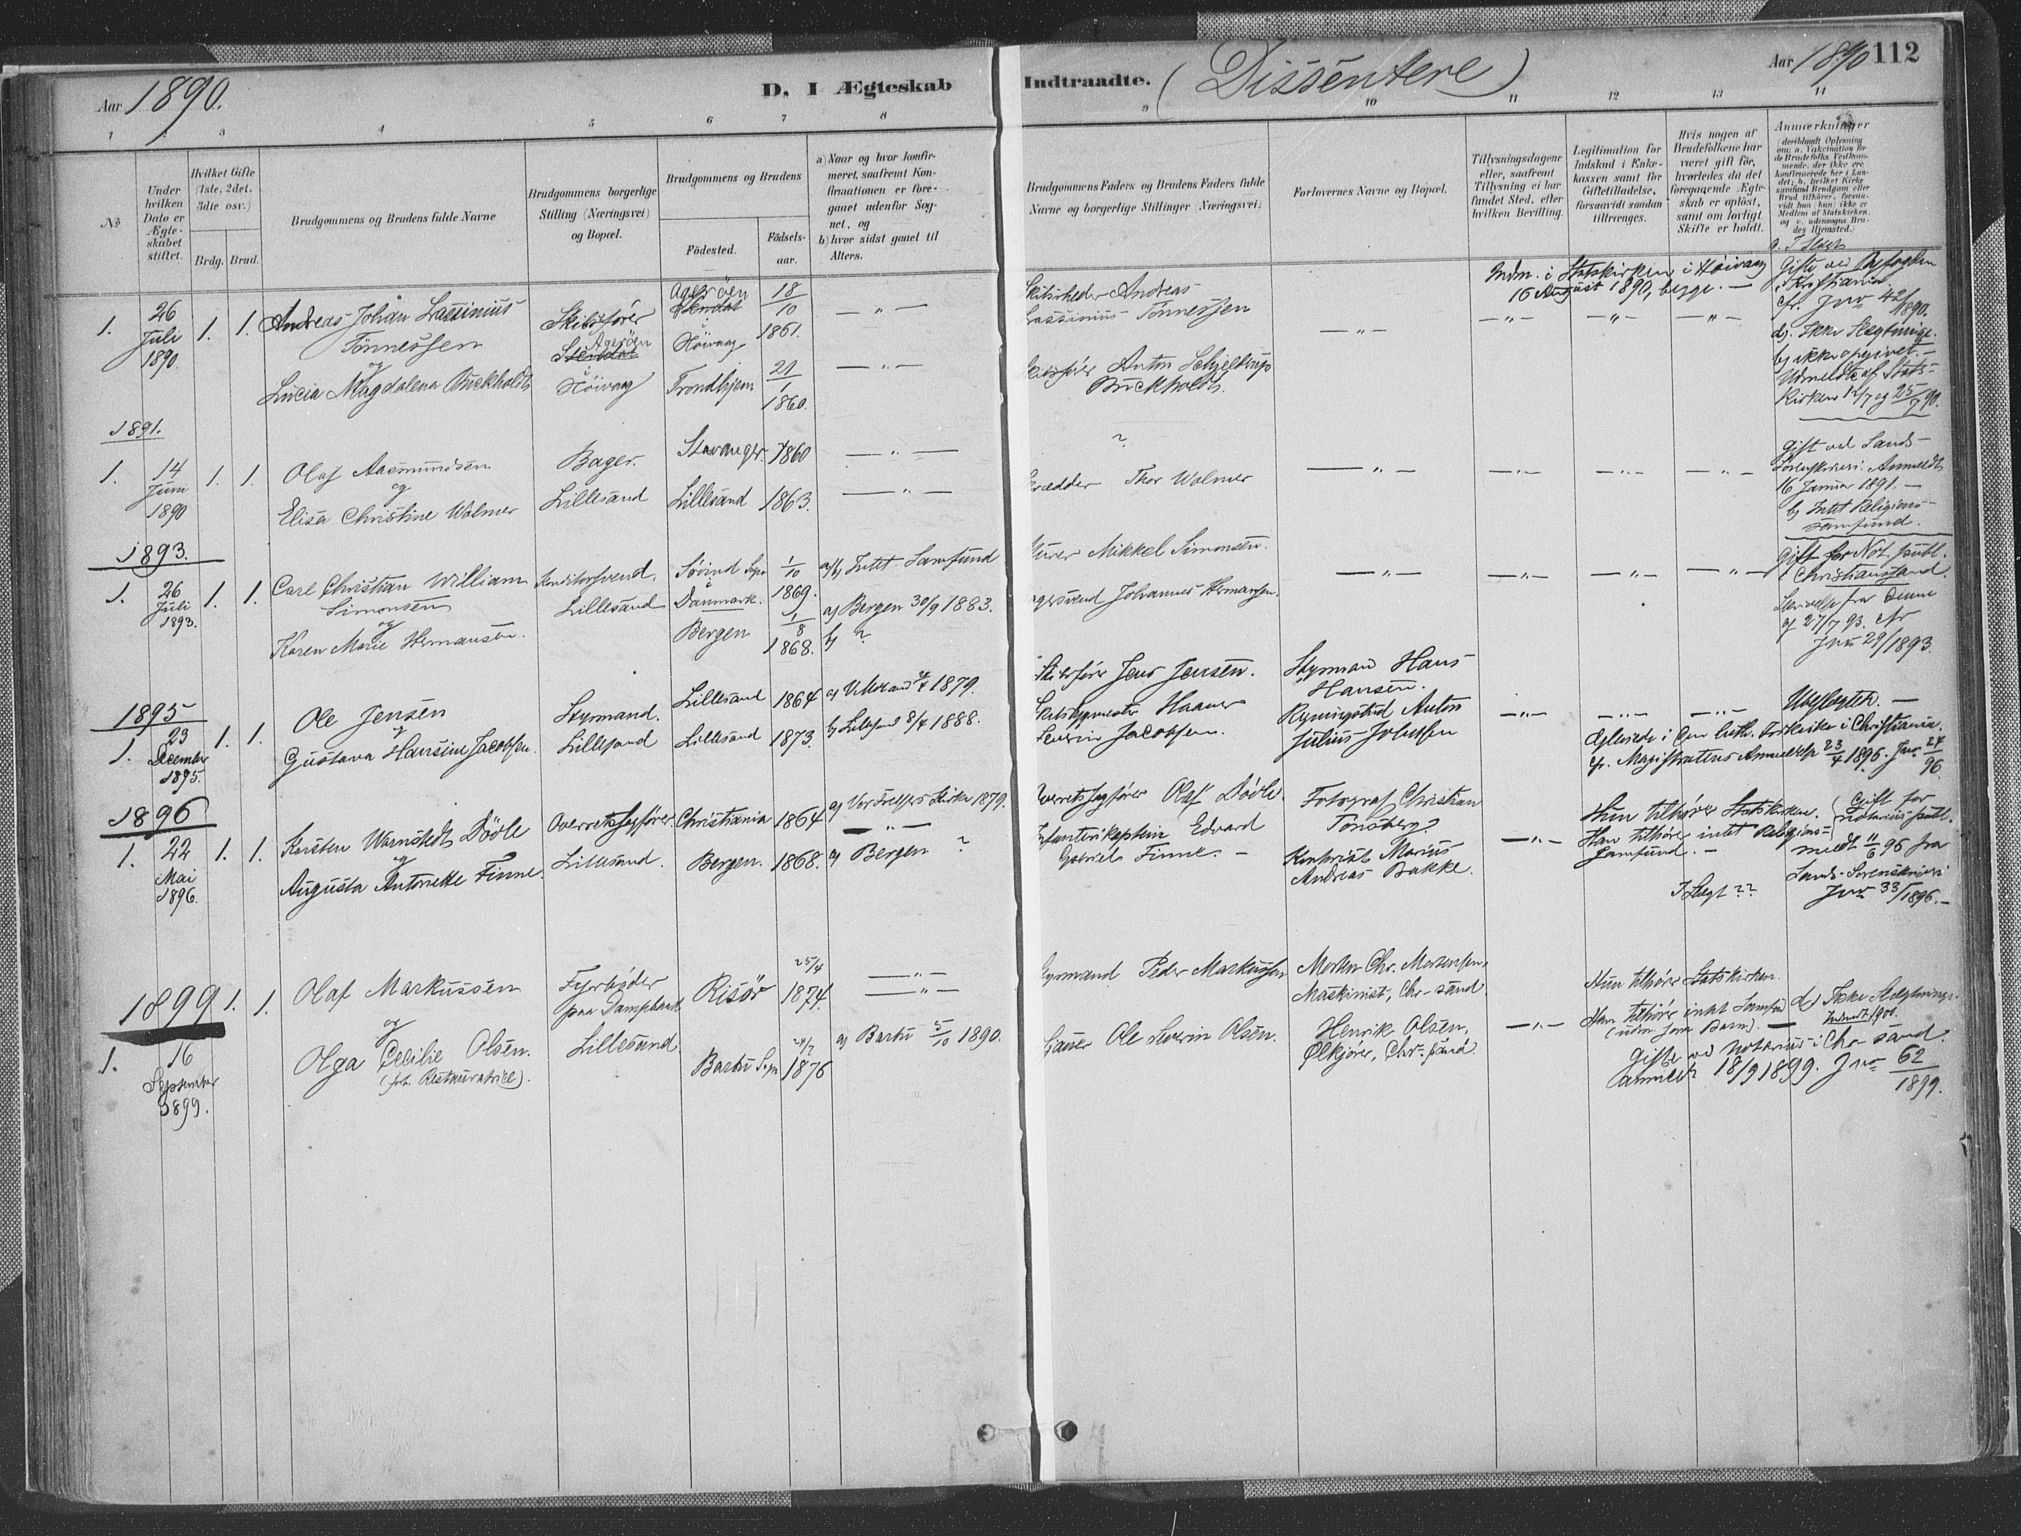 Aar 1890.
D. I Ægteskab Indtraadte. (Dissentere)
Aar 1890 112
1 2 3 4 5 6 7 8 9 10 11 12 13 14
No
Under hvilken Dato er Ægteskabet stiftet.
Hvilket Gifte (1ste, 2det, 3die osv.)
Brdg. Brud.
Brudgommens og Brudens fulde Navne
Brudgommens borgerlige Stilling (Næringsvei) og Bopæl.
Brudgommens og Brudens
Fødested.
Fødsels-aar.
a) Naar og hvor konfirmeret, saafremt Konfirmationen er foregaaet udenfor Sognet, og
b) hvor sidst gaaet til Alters.
Brudgommens Faders og Brudens Faders fulde Navne og borgerlige Stillinger (Næringsvei)
Forlovernes Navne og Bopæl.
Tillysningsdagene eller, saafremt Tillysning ei har fundet Sted, efter hvilken Bevilling.
Legitimation for Indskud i Enkekassen samt for Giftetilladelse, forsaavidt saadan tiltrænges.
Hvis nogen af Brudefolkene har været gift før, hvorledes da det foregaaende Ægteskab er opløst, samt om lovligt Skifte er holdt.
Anmærkninger
1. 26 Juli 1890 1. 1.
Andreas Johan Lassinius Tønnessen
og
Lucia Magdalena Buckholdt
Skibsfører
Agerøen
Stendal
i Høivaag
Agerøen
Stendal
i Høivaag 18/10 1861.
Trondhjem 21/1 1860.
— " —
— " —
Andreas
Lassinius Tønnessen
Anton Schjeldrup
Buckholdt
— " —
Indm. i Statskirken i Høivaag
16 August 1890, begge. —
— " — — " — — " —
Gifte ved Byfogden
i Kristiania
cfr. Jno 42/1890.
d) Ikke Slægtninge.
b) ikke opgivet. —
Udmeldte af Stats-
Kirken 12/7 og 25/7 90.
1891.
1. 14 Juni 1890 1. 1.
Olaf Aasmundsen
og
Elisa Christine Wolmer
Bager.
Lillesand
Stavanger. 1860
Lillesand 1863.
— " —
— " —
?
Thor Wolmer
— " — — " — — " — — " —
Gift ved Sands-
Sorenskriveri. Anmeldt
16 Januar 1891. —
b) Intet Religions-
samfund.
1893.
1. 26 Juli 1893. 1. 1.
Carl Christian William
Simonsen
og
Karen Marie Hermansen.
Konditorsvend.
Lillesand
Søvind Sogn
Danmark.
1/10 1869.
Bergen 1/8 1868.
a/b) Intet Samfund
a) Bergen 30/9 1883.
b) ?
Murer Mikkel Simonsen.
Johannes Hermansen.
— " — — " — — " — — " —
Gift for Not. publ.
i Christianssand.
Skrivelse fra denne
af 27/7 93. Nr
Jno 29/1893.
1895
1. 23 December 1895. 1. 1.
Ole Jensen
og
Gustava Hansine Jacobsen.
Styrmand.
Lillesand
Lillesand 1864
Lillesand 1873.
1879.
8/4 1888.
Skibsfører Jens Jensen.
Severin Jacobsen.
Styrmand Hans
Hansen.
Anton
Julius Jacobsen
— " — — " — — " —
Ubeslægtede. —
Ægteviede i den luth. Frikirke i Christiania.
cfr. Magistratens Anmeldelse 23/4 1896. Jno 24/96
1896
1. 22 Mai 1896. 1. 1.
Karsten Warnstedt Døvle
og
Augusta Antonette Finne.
Overretssagfører.
Lillesand.
Christiania 1864
Bergen. 1868.
a) Vor Frelsers Kirke 1879.
— " —
a) Bergen ?
Overretssagfører Olaf Døvle.
Infanterikaptein Edvard
Gabriel Finne. —
Fotograf Christian
Tønsberg
Kontorist Marius
Andreas Bakke.
— " —
Hun tilhører Statskirken.
Han tilhører intet Religions=
Samfund. —
I Slægt ??
Gift for
Notarius publ.
meldt 11/6 96 fra
Sands-Sorenskriveri
Jno 33/1896. —
1899 1. 1.
1. 16 September 1899.
Olaf Markussen
og
Olga Cecilie Olsen.
(fot. Restauratrice).
Fyrbøder
paa Dampbaad
Lillesand.
Risør 25/4 1874.
Barbu Sogn 24/2 1876
— " —
— " —
a) Barbu 5/10 1890.
Styrmand Peder Markussen
Ole Severin Olsen.
Morten Chr. Mortensen,
Maskinist, Chr-sand.
Henrik Olsen,
Ølkjører, Chr-sand.
— " —
Hun tilhører Statskirken
Han tilhører intet Samfund
(uden for Barn). —
d) Ikke Slægtninge.
Indmeldt 1900.
Gifte ved Notarius i Chr.sand.
Anmeldt 18/9 1899. Jno 62/1899.